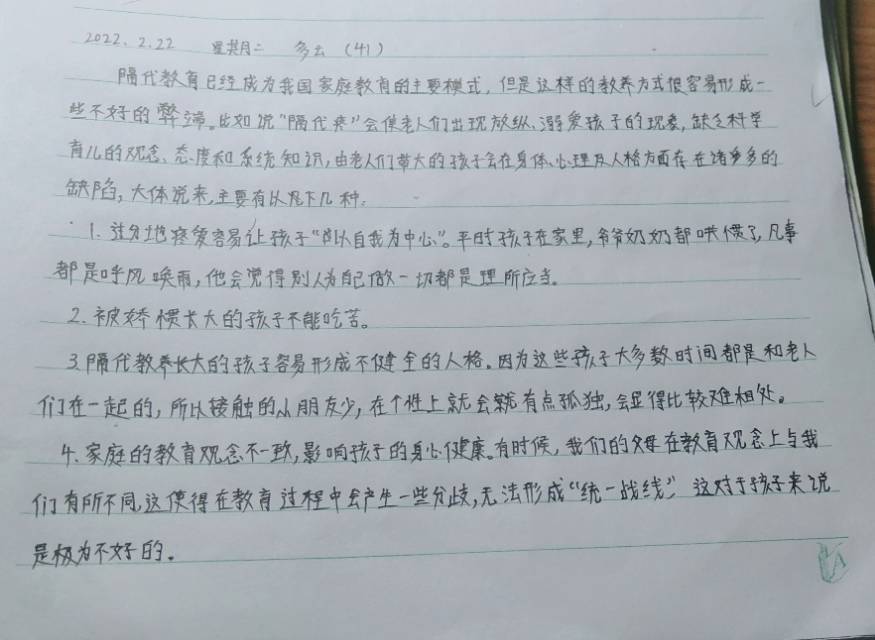 2022.2.22 星期二 多云 (41)
隔代教育已经成为我国家庭教育的主要模式，但是这样的教养方式很容易形成一
些不好的弊端。比如说"隔代养"会使老人们出现放纵、溺爱孩子的现象，缺乏科学
育儿的观念、态度和系统知识，由老人们带大的孩子会在身体、心理及人格方面存在诸多多的
缺陷，大体说来，主要有以下几种：
1. 过分地疼爱容易让孩子"以自我为中心"。平时孩子在家里，爷爷奶奶都哄惯了，凡事
都是呼风唤雨，他会觉得别人为自己做一切都是理所应当。
2. 被娇惯长大的孩子不能吃苦。
3. 隔代教养长大的孩子容易形成不健全的人格。因为这些孩子大多数时间都是和老人
们在一起的，所以接触的小朋友少，在个性上就会就有点孤独，会显得比较难相处。
4. 家庭的教育观念不一致，影响孩子的身心健康。有时候，我们的父母在教育观念上与我
们有所不同，这使得在教育过程中会产生一些分歧，无法形成"统一战线"这对于孩子来说
是极为不好的。